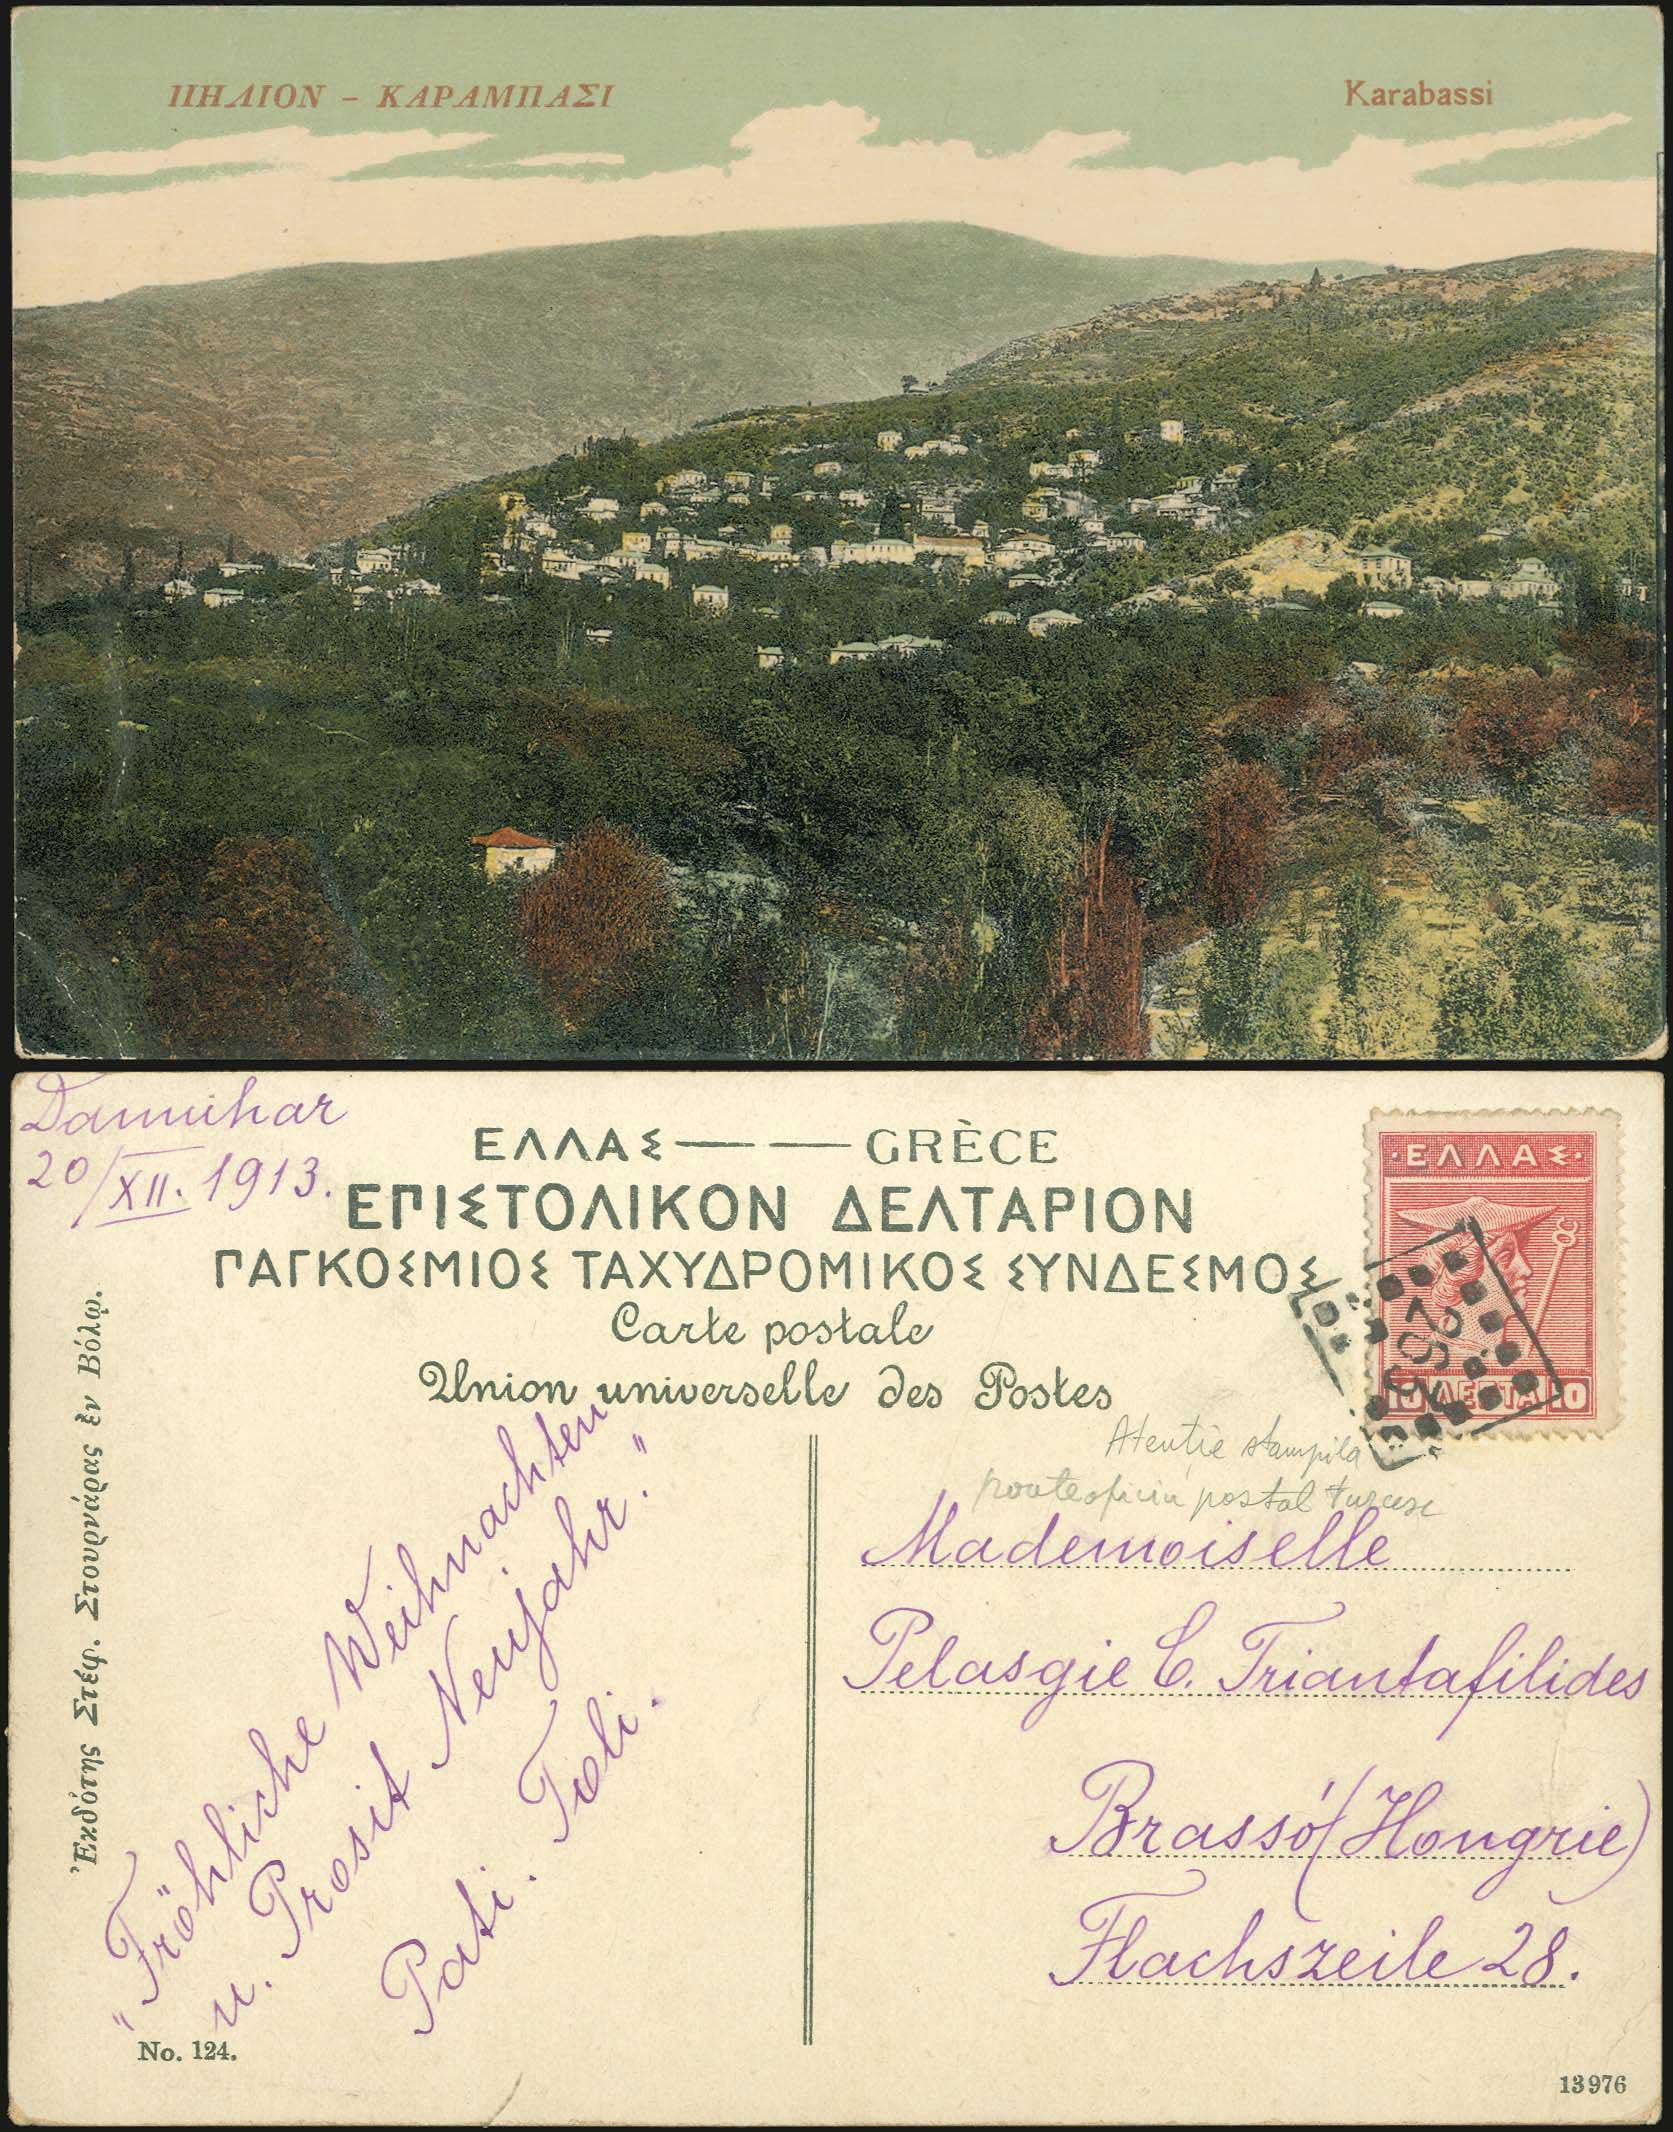 ΠΗΛΙΟΝ - ΚΑΡΑΜΠΑΣΙ
Karabassi
Damuhar
20/XII. 1913.
ΕΛΛΑΣ — — GRÈCE
ΕΠΙΣΤΟΛΙΚΟΝ ΔΕΛΤΑΡΙΟΝ
ΠΑΓΚΟΣΜΙΟΣ ΤΑΧΥΔΡΟΜΙΚΟΣ ΣΥΝΔΕΣΜΟΣ
Carte postale
Union universelle des Postes
·ΕΛΛΑΣ·
10 ΛΕΠΤΑ 10
Ἐκδότης Στέφ. Στουρνάρας ἐν Βόλῳ.
Atenție stampila
postal turcesc
"Fröhliche Weihnachten
u. Prosit Neujahr."
Pati. Foli.
Mademoiselle
Pelasgie C. Triantafilides
Brassó (Hongrie)
Flachszeile 28.
No. 124.
13976